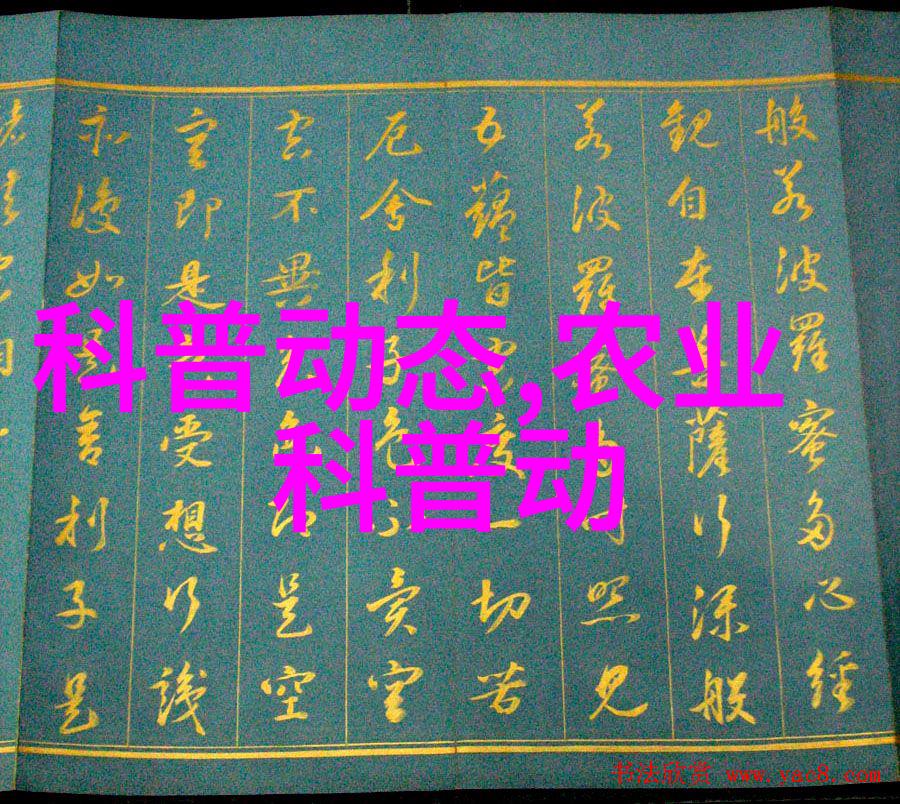 般若波羅蜜多心經
觀自在菩薩行深般
若波羅蜜多時照見
五蘊皆空度一切苦
厄舍利子色不異空
空不異色色即是空
空即是色受想行識
亦復如是舍利子是
科普动态,农业
科普动
书法欣赏 www.yac8.com